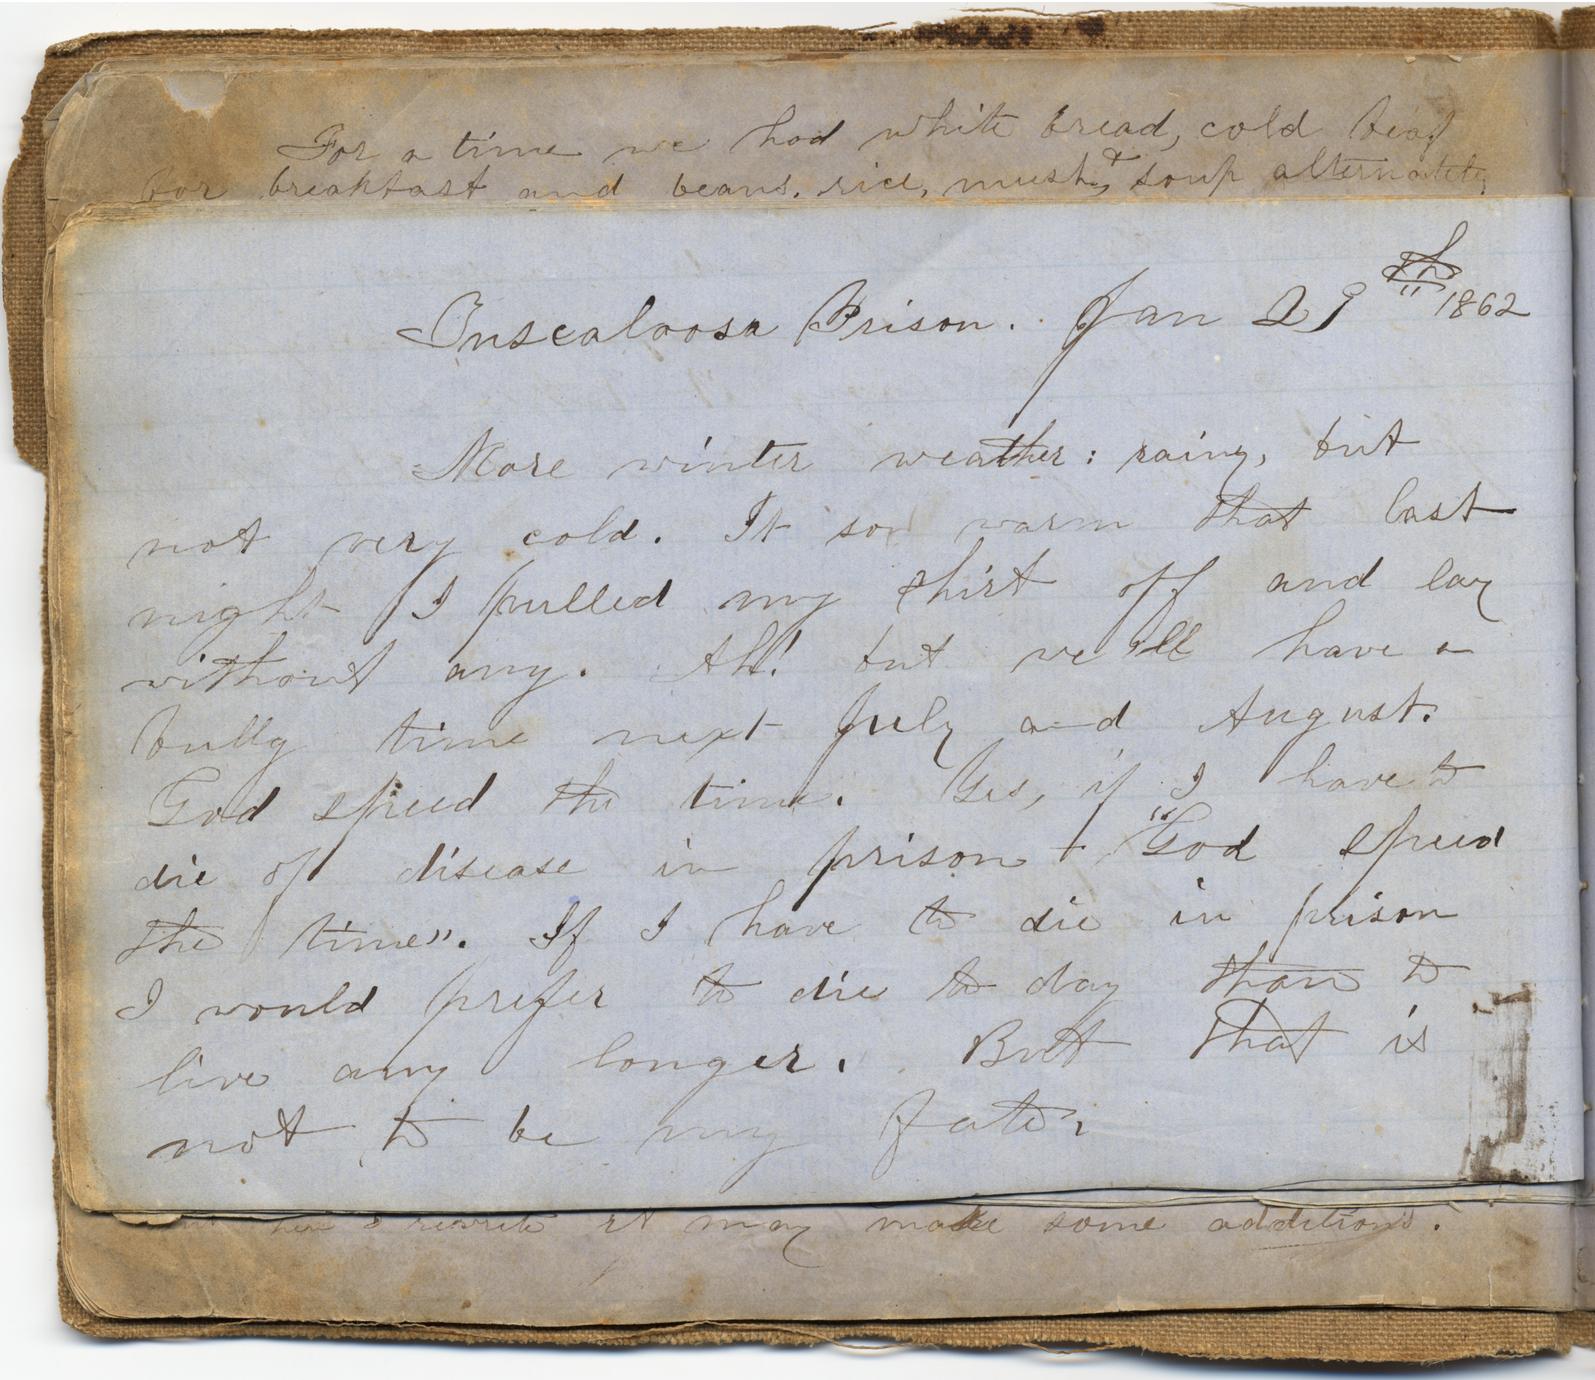 For a time we had white bread, cold beaf
for breakfast and beans, rice, mush, & soup alternately
Tuscaloosa Prison. Jan 29th 1862
More winter weather: rainy, but
not very cold. It so warm that last
night I pulled my shirt off and lay
without any. Ah! but we'll have a
bully time next July and August.
God speed the time. Yes, if I have to
die of disease in prison + "God speed
the time". If I have to die in prison
I would prefer to die to day than to
live any longer. But that is
not to be my fate.
I rewrite it may make some additions.